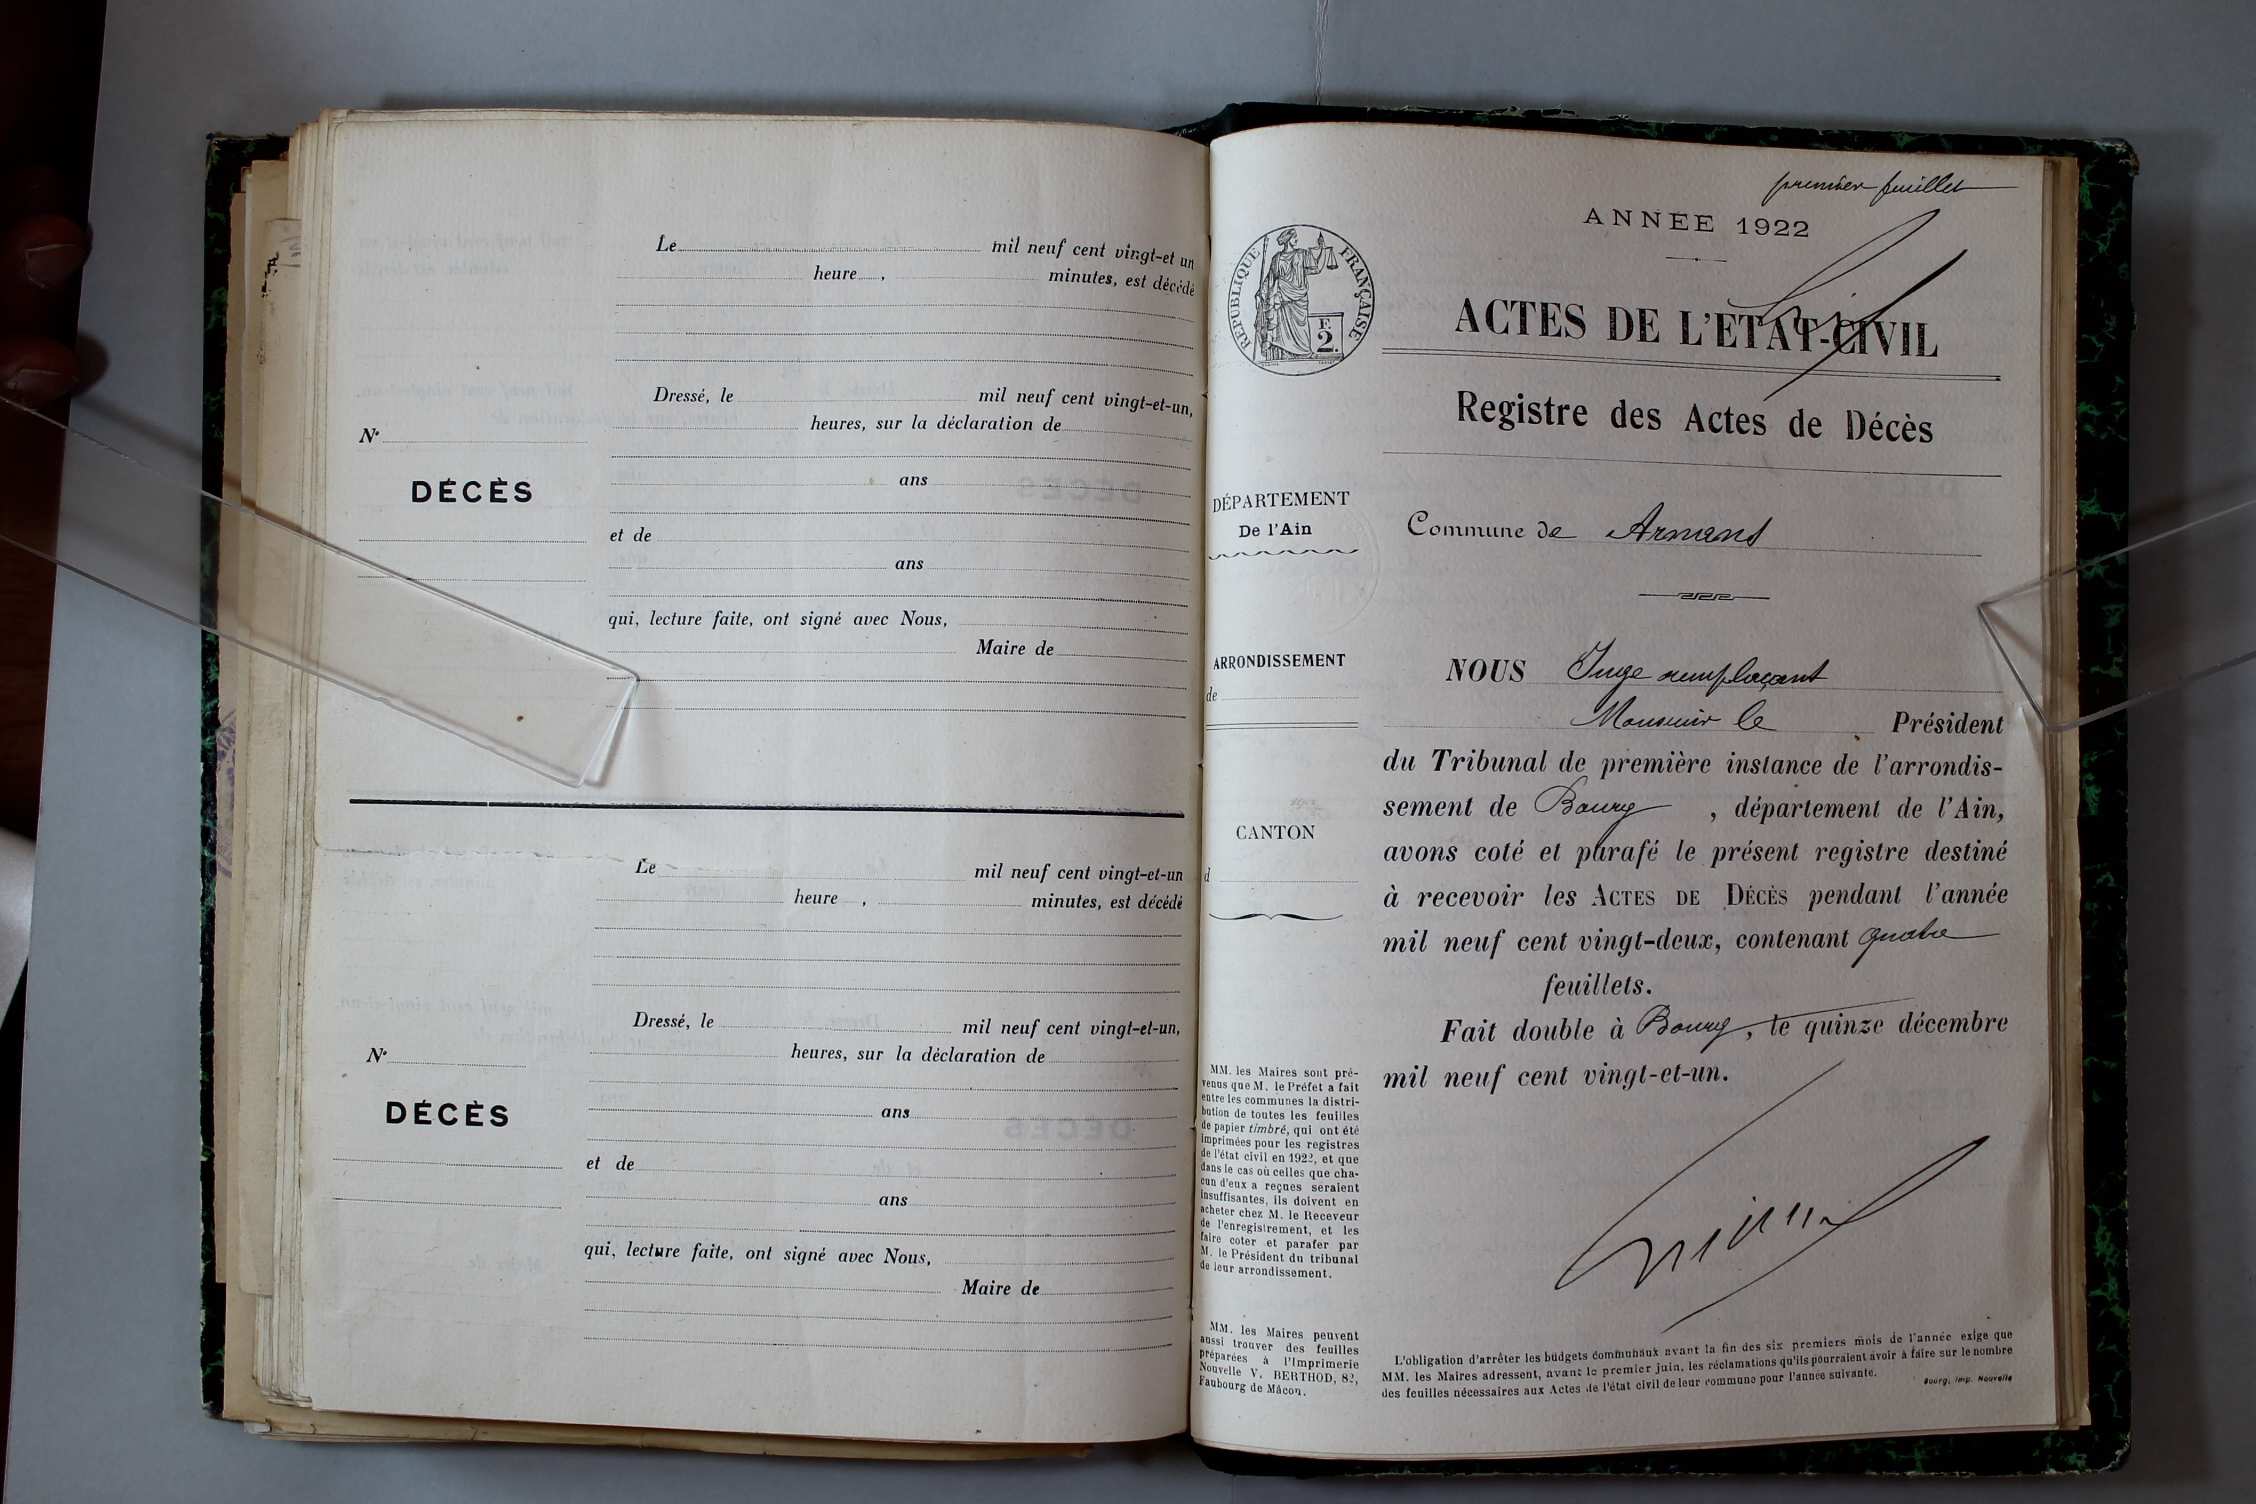 Le mil neuf cent vingt-et un
heure , minutes, est décédé
Dressé, le mil neuf cent vingt-et-un,
heures, sur la déclaration de
N°
DÉCÈS
ans
et de
ans
qui, lecture faite, ont signé avec Nous,
Maire de
Le mil neuf cent vingt-et-un
heure , minutes, est décédé
Dressé, le mil neuf cent vingt-et-un,
heures, sur la déclaration de
N°
DÉCÈS
ans
et de
ans
qui, lecture faite, ont signé avec Nous,
Maire de
premier feuillet
ANNÉE 1922
RÉPUBLIQUE FRANÇAISE
F.
2.
ACTES DE L'ETAT-CIVIL
Registre des Actes de Décès
DÉPARTEMENT
De l'Ain
Commune de Armans
ARRONDISSEMENT
de
CANTON
d
NOUS Juge remplaçant
Monsieur le Président
du Tribunal de première instance de l'arrondis-
sement de Bourg , département de l'Ain,
avons coté et parafé le présent registre destiné
à recevoir les ACTES DE DÉCÈS pendant l'année
mil neuf cent vingt-deux, contenant quatre
feuillets.
Fait double à Bourg, le quinze décembre
mil neuf cent vingt-et-un.
MM. les Maires sont pré-
venus que M. le Préfet a fait
entre les communes la distri-
bution de toutes les feuilles
de papier timbré, qui ont été
imprimées pour les registres
de l'état civil en 1922, et que
dans le cas où celles que cha-
cun d'eux a reçues seraient
insuffisantes, ils doivent en
acheter chez M. le Receveur
de l'enregistrement, et les
faire coter et parafer par
M. le Président du tribunal
de leur arrondissement.
MM. les Maires peuvent
aussi trouver des feuilles
préparées à l'Imprimerie
Nouvelle V. BERTHOD, 82,
Faubourg de Mâcon.
L'obligation d'arrêter les budgets communaux avant la fin des six premiers mois de l'année exige que
MM. les Maires adressent, avant le premier juin, les réclamations qu'ils pourraient avoir à faire sur le nombre
des feuilles nécessaires aux Actes de l'état civil de leur commune pour l'année suivante.
Bourg, Imp. Nouvelle